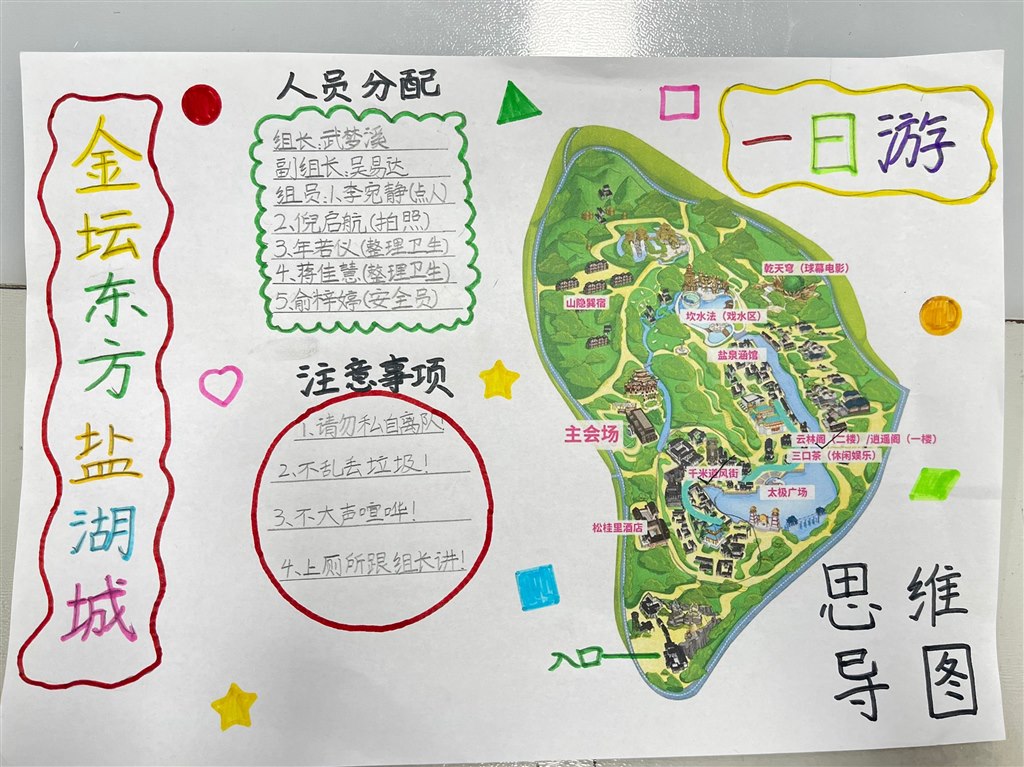 金坛东方盐湖城
人员分配
组长:武梦溪
副组长:吴易达
组员:1.李宛静(点人)
2.倪启航(拍照)
3.年若仪(整理卫生)
4.蒋佳慧(整理卫生)
5.俞梓婷(安全员)
注意事项
1.请勿私自离队
2.不乱丢垃圾!
3.不大声喧哗!
4.上厕所跟组长讲!
一日游
乾天穹(球幕电影)
山隐巽宿
坎水法(戏水区)
盐泉涵馆
主会场
云林阁(二楼)/逍遥阁(一楼)
三口茶(休闲娱乐)
千米巡风街
太极广场
松桂里酒店
入口
思维
导图